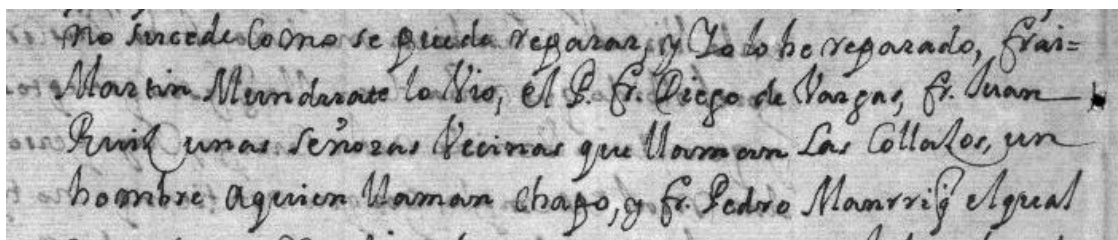 no sucede como se puede reparar, y Yo lo he reparado, frai=
Martin Mundarate lo Vio, el P. fr. Diego de Vargas, fr. Juan
Ruiz unas señoras Vecinas que llaman Las Collazos, un
hombre aquien llaman chapo, y fr. Pedro Manrriq̃ elqual